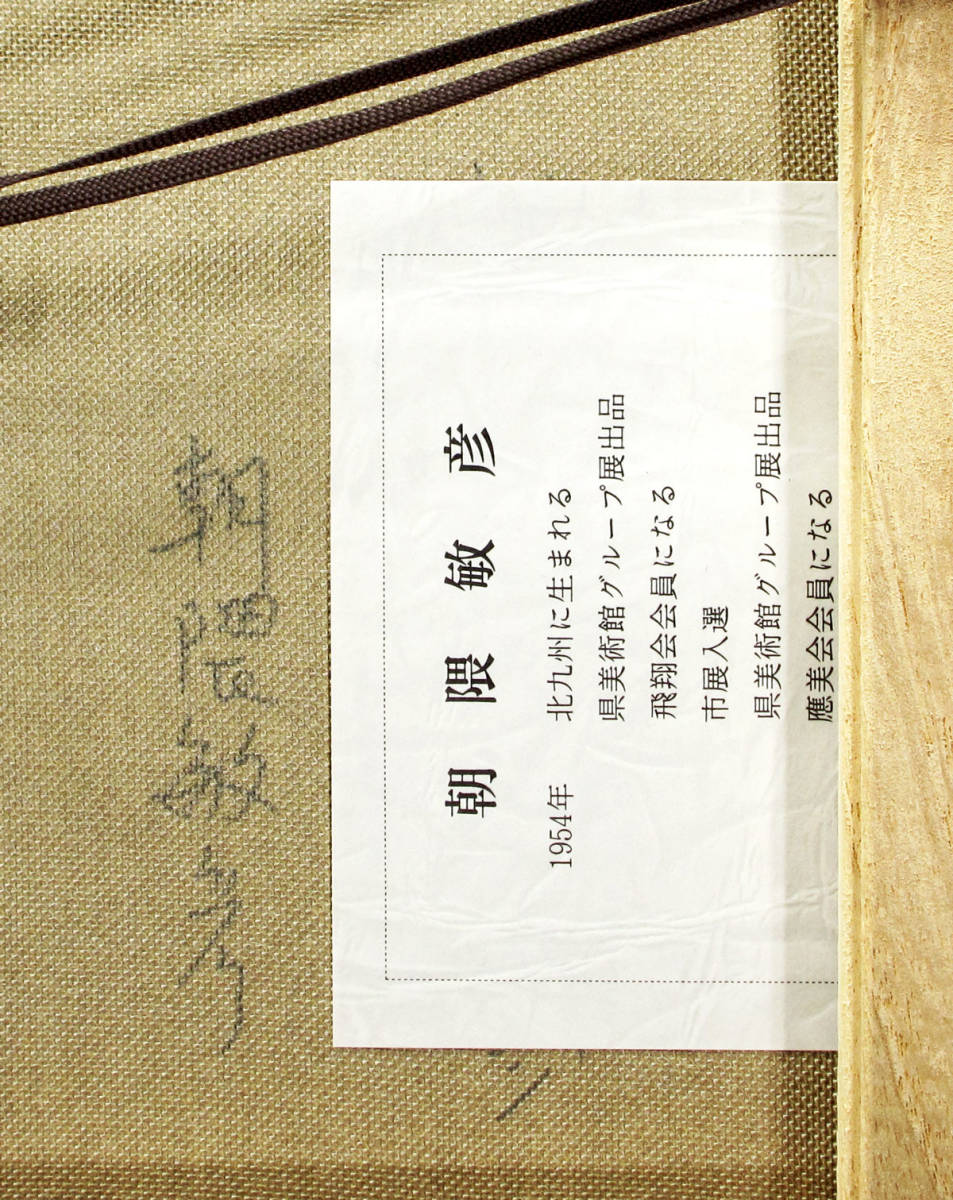 朝隈敏彦
1954年 北九州に生まれる
県美術館グループ展出品
飛翔会会員になる
市展入選
県美術館グループ展出品
應美会会員になる